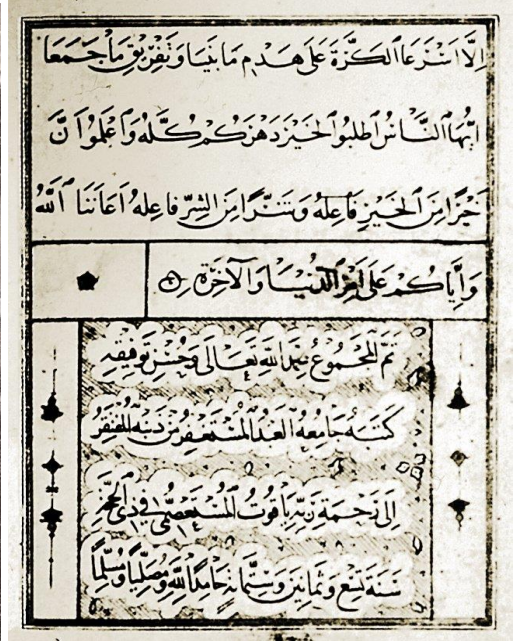 إِلَّا أَسْرَعَا الْكَرَّةَ عَلَى هَدْمِ مَا بَنَيَا وَتَفْرِيقِ مَا جَمَعَا
أَيُّهَا النَّاسُ اطْلُبُوا الْخَيْرَ دَهْرَكُمْ كُلَّهُ وَاعْلَمُوا أَنَّ
خَيْرًا مِنَ الْخَيْرِ فَاعِلُهُ وَشَرًّا مِنَ الشَّرِّ فَاعِلُهُ أَعَانَنَا اللهُ
وَإِيَّاكُمْ عَلَى أَمْرِ الدُّنْيَا وَالْآخِرَةِ
تَمَّ الْمَجْمُوعُ بِحَمْدِ اللهِ تَعَالَى وَحُسْنِ تَوْفِيقِهِ
كَتَبَهُ جَامِعُهُ الْعَبْدُ الْمُسْتَغْفِرُ مِنْ ذَنْبِهِ الْمُفْتَقِرُ
إِلَى رَحْمَةِ رَبِّهِ يَاقُوتُ الْمُسْتَعْصِمِيُّ فِي ذِي الْحِجَّةِ
سَنَةَ تِسْعٍ وَثَمَانِينَ وَسِتِّمِائَةٍ حَامِدًا لِلَّهِ وَمُصَلِّيًا وَمُسَلِّمًا